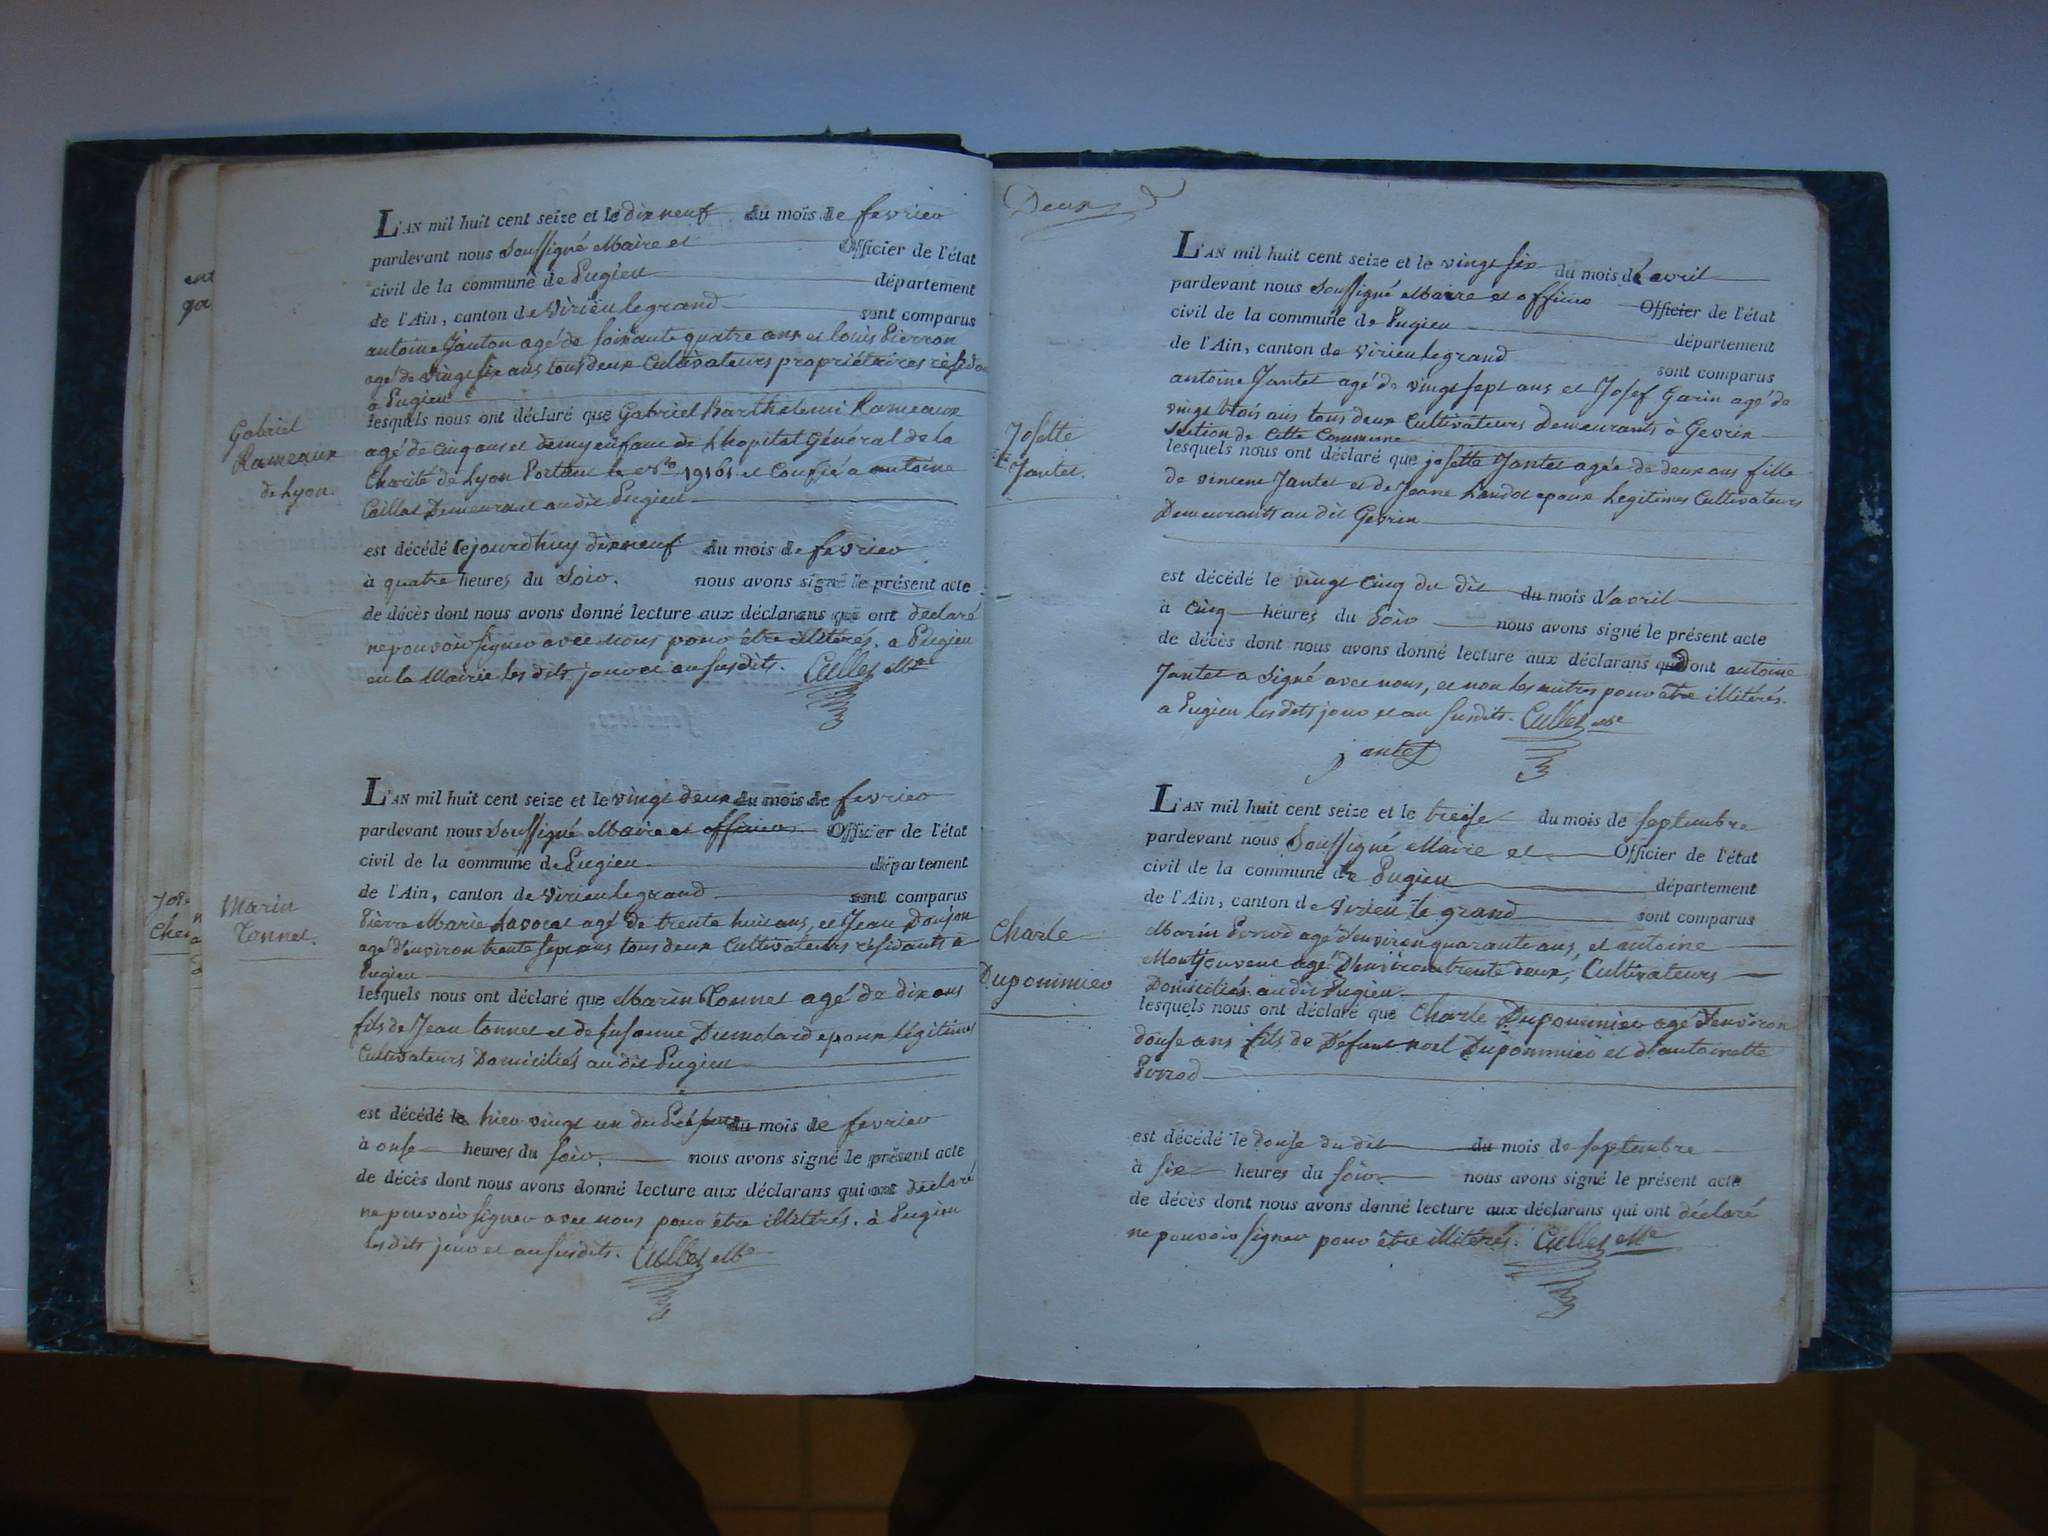 L'AN mil huit cent seize et le dix neuf du mois de fevrier
pardevant nous Soussigné Maire et Officier de l'état
civil de la commune de Pugieu département
de l'Ain, canton de Virieu le grand sont comparus
antoine Janton agé de soixante quatre ans et louis Pierron
agé de vingt six ans tous deux Cultivateurs propriétaires
a Pugieu
Gabriel
Rameaux
de Lyon.
lesquels nous ont déclaré que Gabriel Barthelemi Rameaux
agé de cinq ans et demy enfant de L'hopital Général de la
Charité de Lyon Portant le n.ro 19161 et Confié a antoine
Caillat Demeurant au dit Pugieu
est décédé cejourdhuy dix neuf du mois de fevrier
à quatre heures du Soir. nous avons signé le présent acte
de décès dont nous avons donné lecture aux déclarans qui ont déclaré
ne pouvoir signer avec nous pour être illitérés. a Pugieu
en la Mairie les dits jour et an susdits. Cullet Me
L'AN mil huit cent seize et le vingt deux du mois de fevrier
pardevant nous Soussigné Maire et officier Officier de l'état
civil de la commune de Pugieu département
de l'Ain, canton de Virieu le grand sont comparus
Marin
Tonnet.
Pierre Marie Lavocat agé de trente huit ans, et Jean Doujon
agé d'environ trente sept ans tous deux Cultivateurs résidants à
Pugieu
lesquels nous ont déclaré que Marin Tonnet agé de dix ans
fils de Jean tonnet et de Susanne Dumolard epoux légitimes
Cultivateurs Domiciliés au dit Pugieu
est décédé le hier vingt un du du mois de fevrier
à onse heures du soir. nous avons signé le présent acte
de décès dont nous avons donné lecture aux déclarans qui ont déclaré
ne pouvoir signer avec nous pour être illitérés. à Pugieu
les dits jour et an susdits. Cullet Me
Deux
L'AN mil huit cent seize et le vingt six du mois d'avril
pardevant nous soussigné Maire et officier Officier de l'état
civil de la commune de Pugieu département
de l'Ain, canton de Virieu le grand sont comparus
antoine Jantet agé de vingt sept ans et Josef Garin agé de
vingt trois ans tous deux Cultivateurs Demeurants à Gevrin
section de Cette Commune
Josette
Jantet.
lesquels nous ont déclaré que josette Jantet agée de deux ans fille
de vincent Jantet et de Jeane Landot epoux Legitimes Cultivateurs
Demeurants au dit Gevrin
est décédé le vingt cinq du dit du mois d'avril
à cinq heures du Soir nous avons signé le présent acte
de décès dont nous avons donné lecture aux déclarans dont antoine
Jantet a signé avec nous, et non les autres pour être illitérés.
a Pugieu les dits jour et an susdits. Cullet Me
jantet
L'AN mil huit cent seize et le treise du mois de septembre
pardevant nous Soussigné Maire et Officier de l'état
civil de la commune de Pugieu département
de l'Ain, canton de Virieu le grand sont comparus
Charle
Dupommier
Marin Perrod agé d'environ quarante ans, et antoine
Montjouvent agé D'environ trente deux, Cultivateurs
Domiciliés au dit Pugieu
lesquels nous ont déclaré que Charle Dupommier agé d'environ
douse ans fils de Défunt noel Dupommier et d'antoinette
Perrod
est décédé le douse du dit du mois de septembre
à six heures du soir. nous avons signé le présent acte
de décès dont nous avons donné lecture aux déclarans qui ont déclaré
ne pouvoir signer pour être illitérés. Cullet Me